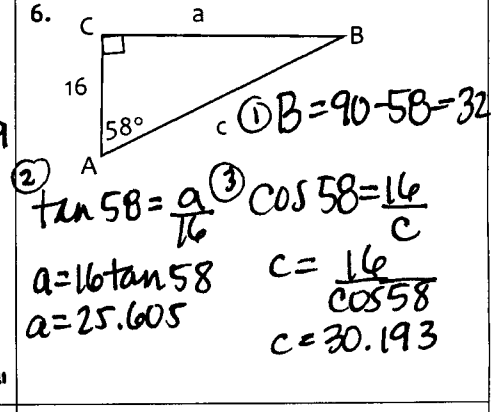 6.
C a B
16
58°
c
A
① B = 90 - 58 = 32
② tan 58 = a/16
a = 16 tan 58
a = 25.605
③ cos 58 = 16/c
c = 16/cos 58
c = 30.193